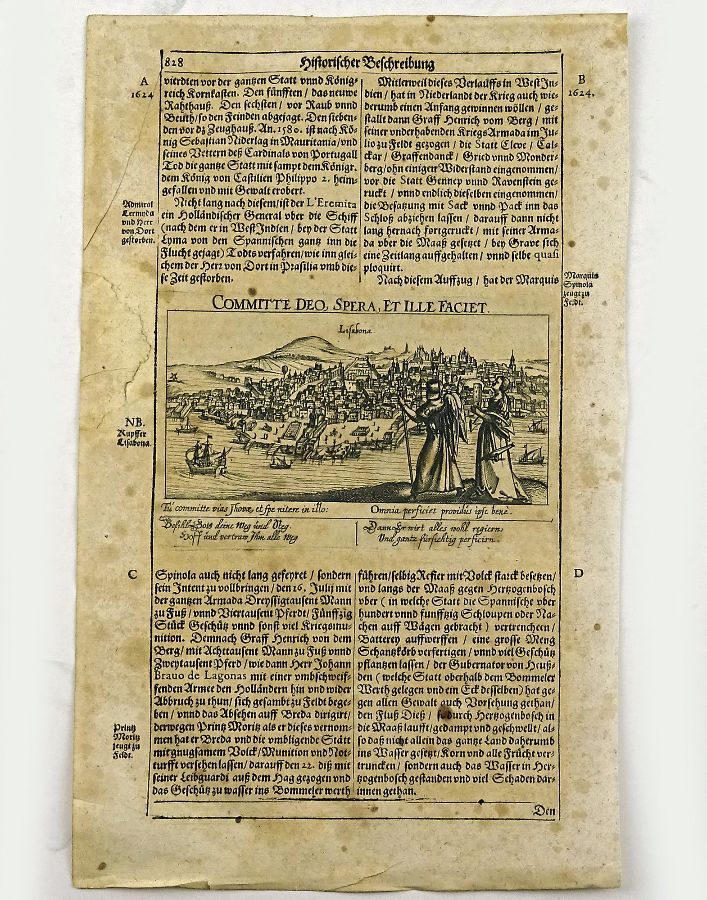 828 Historischer Beschreibung
A
1624
vierdten vor der gantzen Statt vnnd Königs
reich Kornkasten. Den fünfften / das neuwe
Rahthauß. Den sechsten / vor Raub vnnd
Beuth / so den Feinden abgejagt. Den sieben-
den vor dz Zeughauß. An. 1580. ist nach Kö-
nig Sebastian Niderlag in Mauritania / vnd
seines Vettern deß Cardinals von Portugall
Tod die gantze Statt mit sampt dem Königr.
dem König von Castilien Philippo 2. heim-
gefallen vnd mit Gewalt erobert.
Admiral
Lermyda
vnd Herr
von Dort
gestorben.
Nicht lang nach diesem / ist der L'Eremita
ein Holländischer General vber die Schiff
(nach dem er in West Indien / bey der Statt
Lyma von den Spannischen gantz inn die
Flucht gejagt) Todts verfahren / wie inn glei-
chem der Herr von Dort in Prasilia vmb die-
se Zeit gestorben.
B
1624.
Mitlerweil dieses Verlauffs in West In-
dien / hat in Niederlandt der Krieg auch wie-
derumb einen Anfang gewinnen wöllen / ge-
stallt dann Graff Henrich vom Berg / mit
seiner vnderhabenden Kriegs Armada im Ju-
lio zu Feldt gezogen / die Statt Cleve / Cal-
ckar / Graffendanck / Gried vnnd Monder-
berg / ohn einigen Widerstand eingenommen /
vor die Statt Gennep vnnd Ravenstein ge-
ruckt / vnnd endlich dieselben eingenommen /
die Besatzung mit Sack vnnd Pack inn das
Schloß abziehen lassen / darauff dann nicht
lang hernach fortgeruckt / mit seiner Arma-
da vber die Maaß gesetzet / bey Grave sich
eine Zeitlang auffgehalten / vnnd selbe quasi
ploquirt.
Nach diesem Auffzug / hat der Marquis
Marquis
Spinola
zeugt zu
Feldt.
COMMITTE DEO, SPERA, ET ILLE FACIET.
Lisabona.
NB.
Kupffer
Lisabona.
Tu committe vias Jhovæ, et spe nitere in illo:
Omnia perficiet providus ipse bene.
Befihl Gott deine Weg und Steg.
Hoff und vertraw Ihm alle Weg
Dann Er wirt alles wohl regiern,
Und gantz fürsichtig perficirn.
C
Spinola auch nicht lang gefeyret / sondern
sein Intent zu vollbringen / den 26. Julij mit
der gantzen Armada Dreyssigtausent Mann
zu Fuß / vnnd Viertausent Pferdt / Fünffzig
Stück Geschütz vnnd sonst viel Kriegsmu-
nition. Demnach Graff Henrich von dem
Berg / mit Achttausent Mann zu Fuß vnnd
Zweytausent Pferd / wie dann Herr Johann
Brauo de Lagonas mit einer vmbschweif-
fenden Armee den Holländern hin vnd wider
Abbruch zu thun / sich gesambt zu Feldt bege-
ben / vnnd das Absehen auff Breda dirigirt /
derwegen Printz Moritz als er dieses vernom-
men hat er Breda vnd die vmbligende Stätt
mit gnugsamem Volck / Munition vnd Not-
turfft versehen lassen / darauff den 22. diß mit
seiner Leibguardi auß dem Hag gezogen vnd
das Geschütz zu wasser ins Bommeler werth
Printz
Moritz
zeugt zu
Feldt.
D
führen / selbig Refier mit Volck starck besetzen /
vnd langs der Maaß gegen Hertzogenbosch
vber (in welche Statt die Spannische vber
hundert vnnd funfftzig Schloupen oder Na-
chen auff Wägen gebracht) vertrenchen /
Batterey auffwerffen / eine grosse Meng
Schantzkörb verfertigen / vnnd viel Geschütz
pflantzen lassen / der Gubernator von Heuß-
den (welche Statt oberhalb dem Bommeler
Werth gelegen vnd ein Eck desselben) hat ge-
gen allen Gewalt auch Vorsehung gethan /
den Fluß Dieß / so durch Hertzogenbosch in
die Maaß laufft / gedampt vnd geschwelt / al-
so daß nicht allein das gantze Land daherumb
ins Wasser gesetzt / Korn vnd alle Frücht ver-
truncken / sondern auch das Wasser in Her-
tzogenbosch gestanden vnd viel Schaden dar-
innen gethan.
Den